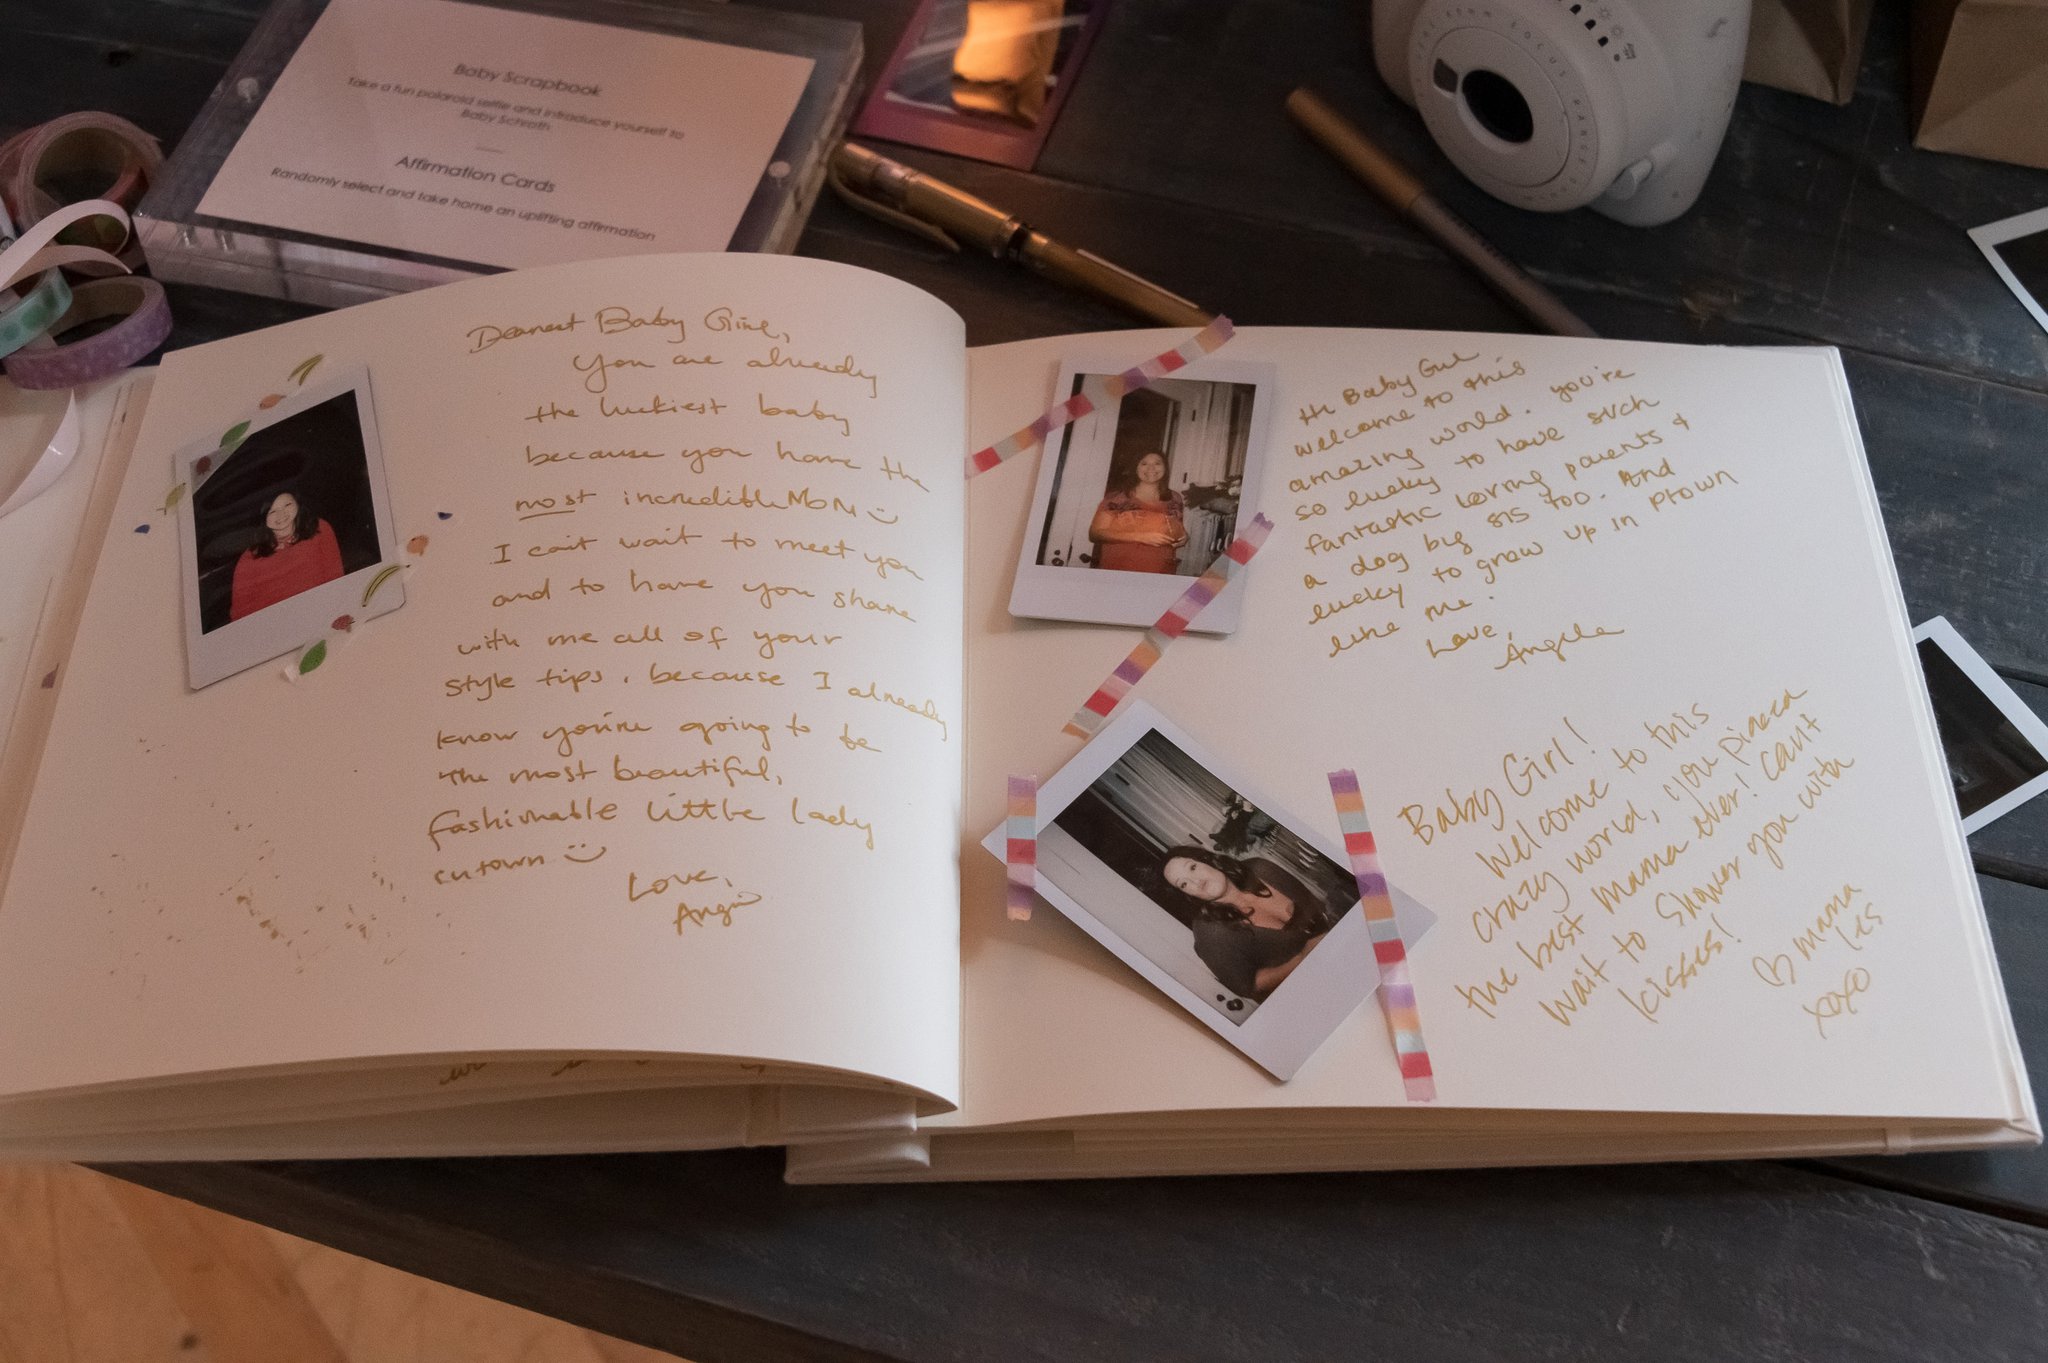 Baby Scrapbook
Take a fun polaroid selfie and introduce yourself to
Baby Schroth
Affirmation Cards
Randomly select and take home an uplifting affirmation
Dearest Baby Girl,
You are already
the luckiest baby
because you have the
most incredible MOM
I can't wait to meet you
and to have you share
with me all of your
style tips, because I already
know you're going to be
the most beautiful,
fashionable little lady
in town
Love,
Angie
Hi Baby Girl
welcome to this
amazing world. you're
so lucky to have such
fantastic loving parents &
a dog big sis too. And
lucky to grow up in ptown
like me.
Love,
Angela
Baby Girl!
Welcome to this
crazy world, you have
the best mama ever! Can't
wait to shower you with
kisses!
mama
Les
xoxo